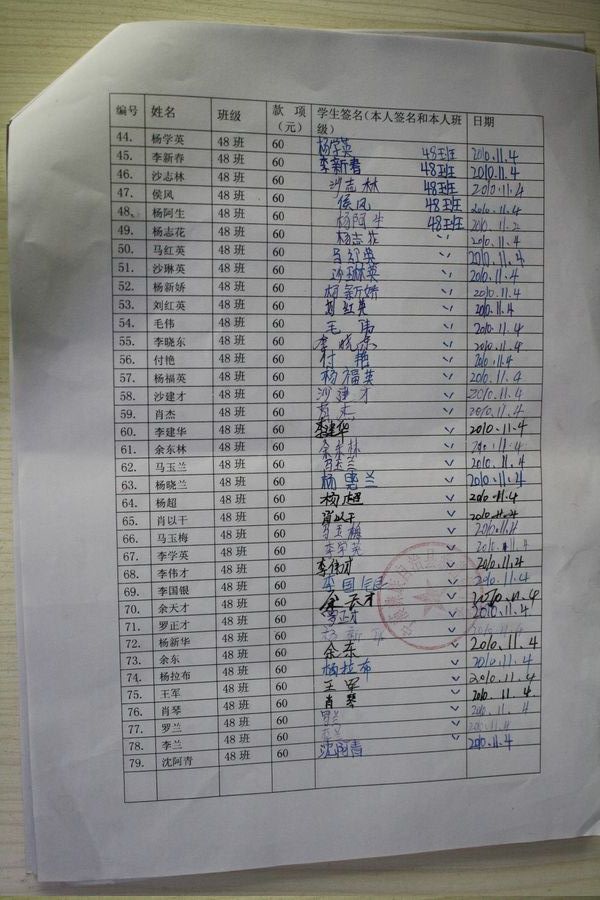 编号 姓名 班级 款 项(元) 学生签名(本人签名和本人班级) 日期
44. 杨学英 48 班 60 杨学英 48班 2010.11.4
45. 李新春 48 班 60 李新春 48班 2010.11.4
46. 沙志林 48 班 60 沙志林 48班 2010.11.4
47. 侯风 48 班 60 侯风 48班 2010.11.4
48、 杨阿生 48 班 60 杨阿生 48班 2010.11.2
49. 杨志花 48 班 60 杨志花 2010.11.4
50. 马红英 48 班 60 马红英 2010.11.4
51. 沙琳英 48 班 60 沙琳英 2010.11.4
52. 杨新娇 48 班 60 杨新娇 2010.11.4
53. 刘红英 48 班 60 刘红英 2010.11.4
54. 毛伟 48 班 60 毛伟 2010.11.4
55. 李晓东 48 班 60 李晓东 2010.11.4
56. 付艳 48 班 60 付艳 2010.11.4
57. 杨福英 48 班 60 杨福英 2010.11.4
58. 沙建才 48 班 60 沙建才 2010.11.4
59. 肖杰 48 班 60 2010.11.4
60. 李建华 48 班 60 李建华 2010.11.4
61. 余东林 48 班 60 余东林 2010.11.4
62. 马玉兰 48 班 60 2010.11.4
63. 杨晓兰 48 班 60 杨 兰 2010.11.4
64. 杨超 48 班 60 杨超 2010.11.4
65. 肖以干 48 班 60 肖以干 2010.11.4
66. 马玉梅 48 班 60 马玉梅 2010.11.4
67. 李学英 48 班 60 李学英 2010.11.4
68. 李伟才 48 班 60 李伟才 2010.11.4
69. 李国银 48 班 60 李国银 2010.11.4
70. 余天才 48 班 60 余天才 2010.11.4
71. 罗正才 48 班 60 罗正才 2010.11.4
72. 杨新华 48 班 60 2010.11.4
73. 余东 48 班 60 余东 2010.11.4
74. 杨拉布 48 班 60 杨拉布 2010.11.4
75. 王军 48 班 60 王军 2010.11.4
76. 肖琴 48 班 60 肖琴 2010.11.4
77. 罗兰 48 班 60 罗兰 2010.11.4
78. 李兰 48 班 60 2010.11.4
79. 沈阿青 48 班 60 沈阿青 2010.11.4